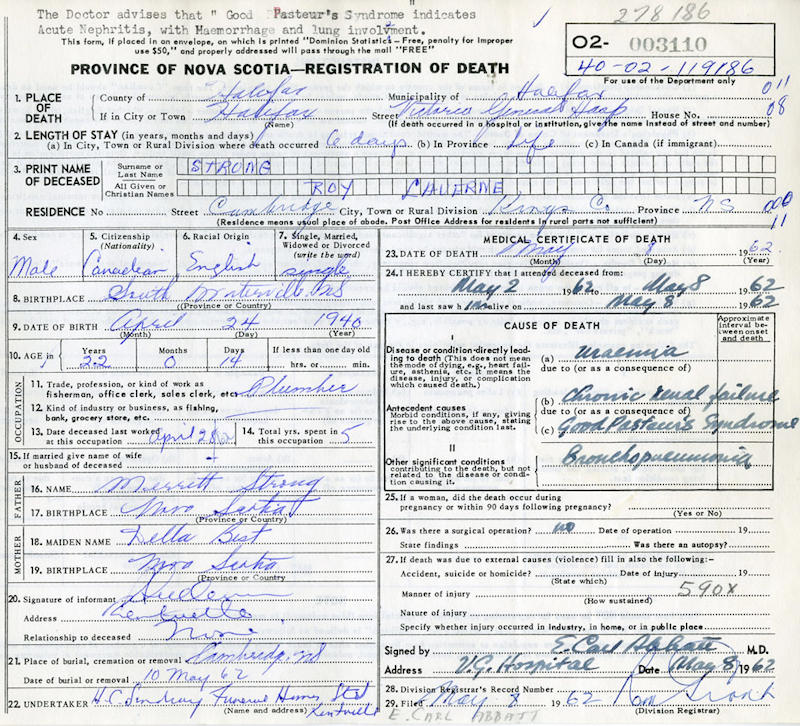 The Doctor advises that " Good Pasteur's Syndrome indicates
Acute Nephritis, with Haemorrhage and lung involvment.
This form, if placed in an envelope, on which is printed "Dominion Statistics–Free, penalty for improper
use $50," and properly addressed will pass through the mail "FREE"
278186
O2- 003110
40-02-119186
For use of the Department Only
PROVINCE OF NOVA SCOTIA—REGISTRATION OF DEATH
1. PLACE OF DEATH
County of Halifax Municipality of Halifax 011
If in City or Town Halifax (Name) Street Victoria General Hosp House No. 08
(If death occurred in a hospital or institution, give the name instead of street and number)
2. LENGTH OF STAY (in years, months and days)
(a) In City, Town or Rural Division where death occurred 6 days (b) In Province Life (c) In Canada (if immigrant)
3. PRINT NAME OF DECEASED
Surname or Last Name STRONG
All Given or Christian Names ROY LAVERNE
RESIDENCE No Street Cambridge City, Town or Rural Division Kings Co. Province NS 000
11
(Residence means usual place of abode. Post Office Address for residents in rural parts not sufficient)
4. Sex Male
5. Citizenship (Nationality) Canadian
6. Racial Origin English
7. Single, Married, Widowed or Divorced (write the word) single
8. BIRTHPLACE South Waterville, NS
(Province or Country)
9. DATE OF BIRTH April 24 1940
(Month) (Day) (Year)
10. AGE in Years 22 Months 0 Days 14 If less than one day old hrs. or min.
OCCUPATION
11. Trade, profession, or kind of work as fisherman, office clerk, sales clerk, etc. Plumber
12. Kind of industry or business, as fishing, bank, grocery store, etc.
13. Date deceased last worked at this occupation April 28/62
14. Total yrs. spent in this occupation 5
15. If married give name of wife or husband of deceased
FATHER
16. NAME Merrett Strong
17. BIRTHPLACE Nova Scotia
(Province or Country)
MOTHER
18. MAIDEN NAME Della Best
19. BIRTHPLACE Nova Scotia
(Province or Country)
20. Signature of informant
Address Kentville
Relationship to deceased None
21. Place of burial, cremation or removal Cambridge, NS
Date of burial or removal 10 May 62
22. UNDERTAKER Funeral Homes
(Name and address) Kentville
MEDICAL CERTIFICATE OF DEATH
23. DATE OF DEATH May 8 1962
(Month) (Day) (Year)
24. I HEREBY CERTIFY that I attended deceased from:
May 2 1962 to May 8 1962
and last saw him alive on May 8 1962
CAUSE OF DEATH
Approximate interval between onset and death
I
Disease or condition directly leading to death (This does not mean the mode of dying, e.g., heart failure, asthenia, etc. It means the disease, injury, or complication which caused death.)
(a) Uraemia
due to (or as a consequence of)
Antecedent causes
Morbid conditions, if any, giving rise to the above cause, stating the underlying condition last.
(b) Chronic renal failure
due to (or as a consequence of)
(c) Good Pasteur's Syndrome
II
Other significant conditions contributing to the death, but not related to the disease or condition causing it.
Bronchopneumonia
25. If a woman, did the death occur during pregnancy or within 90 days following pregnancy?
(Yes or No)
26. Was there a surgical operation? no Date of operation 19
State findings Was there an autopsy?
27. If death was due to external causes (violence) fill in also the following:–
Accident, suicide or homicide? Date of injury 19
(State which)
Manner of injury 590X
(How sustained)
Nature of injury
Specify whether injury occurred in industry, in home, or in public place.
Signed by E. Carl Abbott M.D.
Address V.G. Hospital Date May 8 1962
28. Division Registrar's Record Number
29. Filed May 8 1962
(Division Registrar)
E. CARL ABBATT